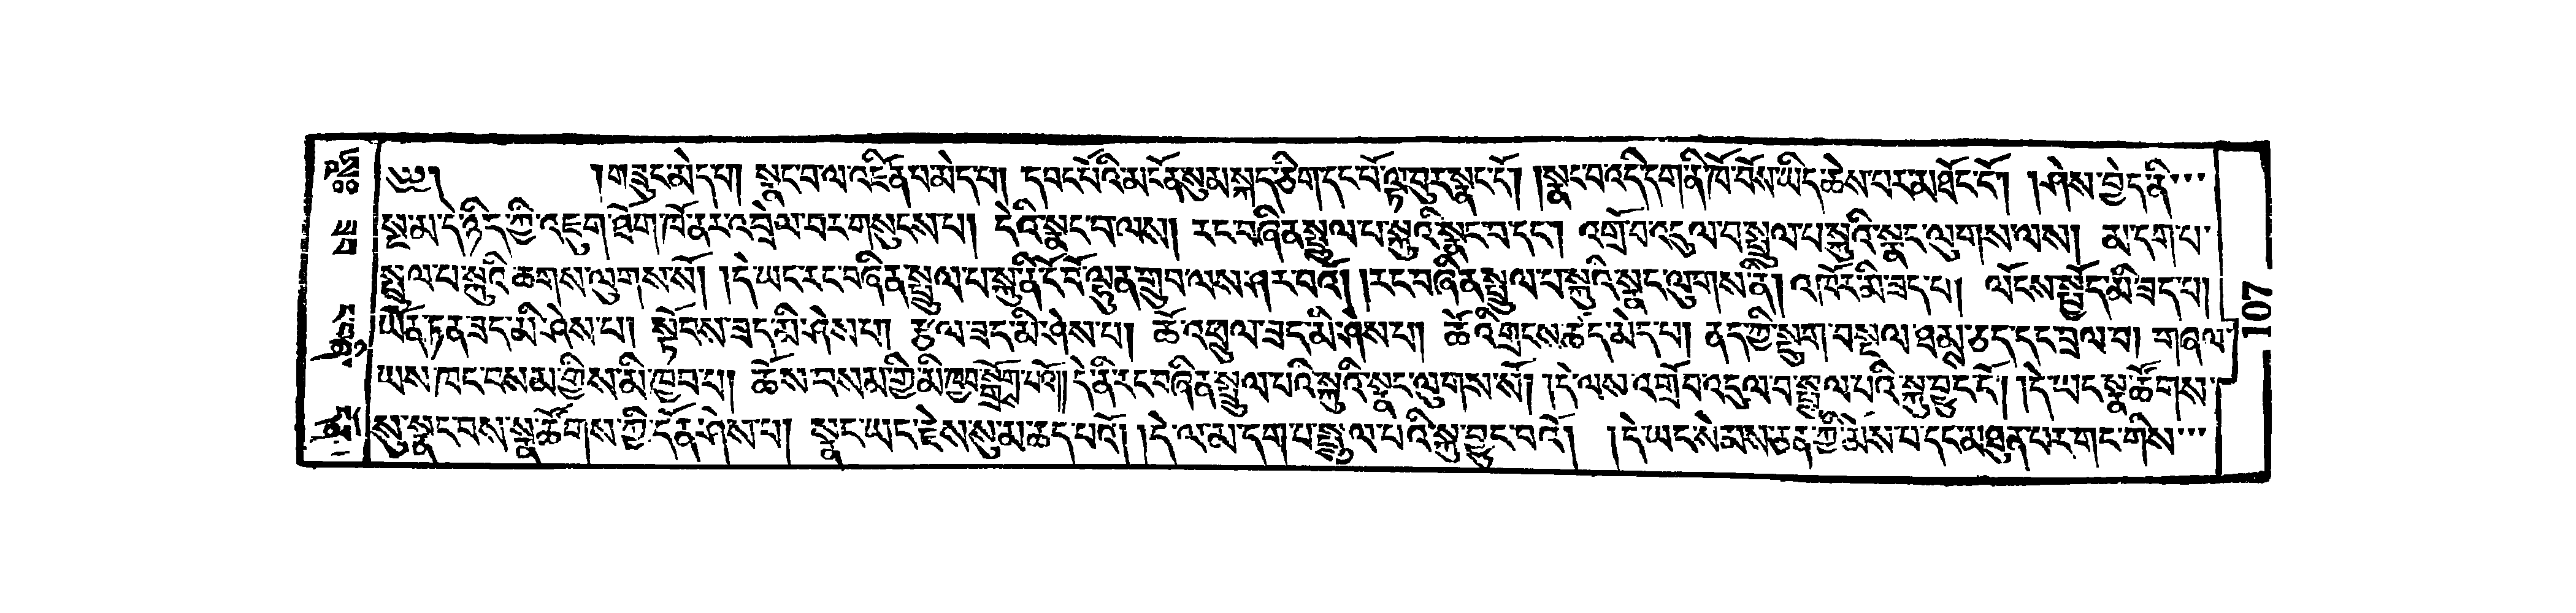 ༄། །གཟུང་མེད་པ། སྣང་བ་ལ་འཛིན་པ་མེད་པ། དབང་པོའི་མངོན་སུམ་སྐད་ཅིག་དང་པོ་ལྟ་བུར་སྣང་ངོ། །སྣང་བ་འདི་དག་ནི་ཁོ་བོས་ཡིད་ཆེས་པར་མཐོང་ངོ། །ཤེས་བྱེད་ནི་
སྔ་མ་དེ་ཉིད་ཀྱི་འཇུག་ཐོག་ཁོ་ནར་འབྲེལ་བར་གསུངས་པ། དེའི་སྣང་བ་ལས། རང་བཞིན་སྤྲུལ་པ་སྐུའི་སྣང་བ་དང་། འགྲོ་བ་འདུལ་བ་སྤྲུལ་པ་སྐུའི་སྣང་ལུགས་ལས། མ་དག་པ་
སྤྲུལ་པ་སྐུའི་ཆགས་ལུགས་སོ། །དེ་ཡང་རང་བཞིན་སྤྲུལ་པ་སྐུ་ནི་ངོ་བོ་ལྷུན་གྲུབ་ལས་ཤར་བའོ། །རང་བཞིན་སྤྲུལ་པ་སྐུའི་སྣང་ལུགས་ནི། འཁོར་མི་ཟད་པ། ལོངས་སྤྱོད་མི་ཟད་པ།
ཡོན་ཏན་ཟད་མི་ཤེས་པ། སྟོངས་ཟད་མི་ཤེས་པ། རྩལ་ཟད་མི་ཤེས་པ། ཆོ་འཕྲུལ་ཟད་མི་ཤེས་པ། ཚེའི་གྲངས་ཚད་མེད་པ། ནད་ཀྱི་སྡུག་བསྔལ་ཐམས་ཅད་དང་བྲལ་བ། གཞལ་
ཡས་ཁང་བསམ་གྱིས་མི་ཁྱབ་པ། ཆོས་བསམ་གྱི་མི་ཁྱབ་སྒྲོག་པའོ།། དེ་ནི་རང་བཞིན་སྤྲུལ་པའི་སྐུའི་སྣང་ལུགས་སོ། །དེ་ལས་འགྲོ་བ་འདུལ་བ་སྤྲུལ་པའི་སྐུ་བྱུང་ངོ་། །དེ་ཡང་སྣ་ཚོགས་
སུ་སྣང་བས་སྣ་ཚོགས་ཀྱི་དོན་ཤེས་པ། སྣང་ཡང་རྗེས་སུ་མ་ཆད་པའོ། །དེ་ལ་མ་དག་པ་སྤྲུལ་པའི་སྐུ་བྱུང་བའོ། །དེ་ཡང་སེམས་ཅན་གྱི་མོས་པ་དང་མཐུན་པར་གང་གིས་